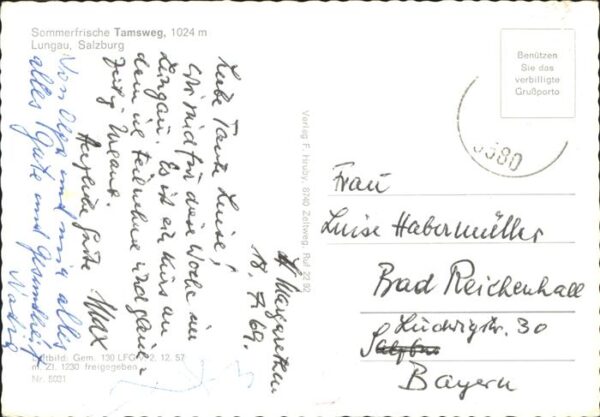 Sommerfrische Tamsweg, 1024 m
Lungau, Salzburg
St Margarethen
18. 7. 69.
Liebe Tante Luise!
Wir sind für diese Woche im
Lungau. Es ist ein Kurs an
dem ich teilnehme und
Herzliche Grüße
Max
Von Olga und mir alles
alles Gute und Gesundheit
Verlag F. Hruby, 8740 Zeltweg, Ruf 22 92
Benützen
Sie das
verbilligte
Grußporto
5580
Frau
Luise Habermüller
Bad Reichenhall
Ludwigstr. 30
Bayern
Luftbild: Gem. 130 LFG v. 2. 12. 57
m. Zl. 1230 freigegeben
Nr. 5031